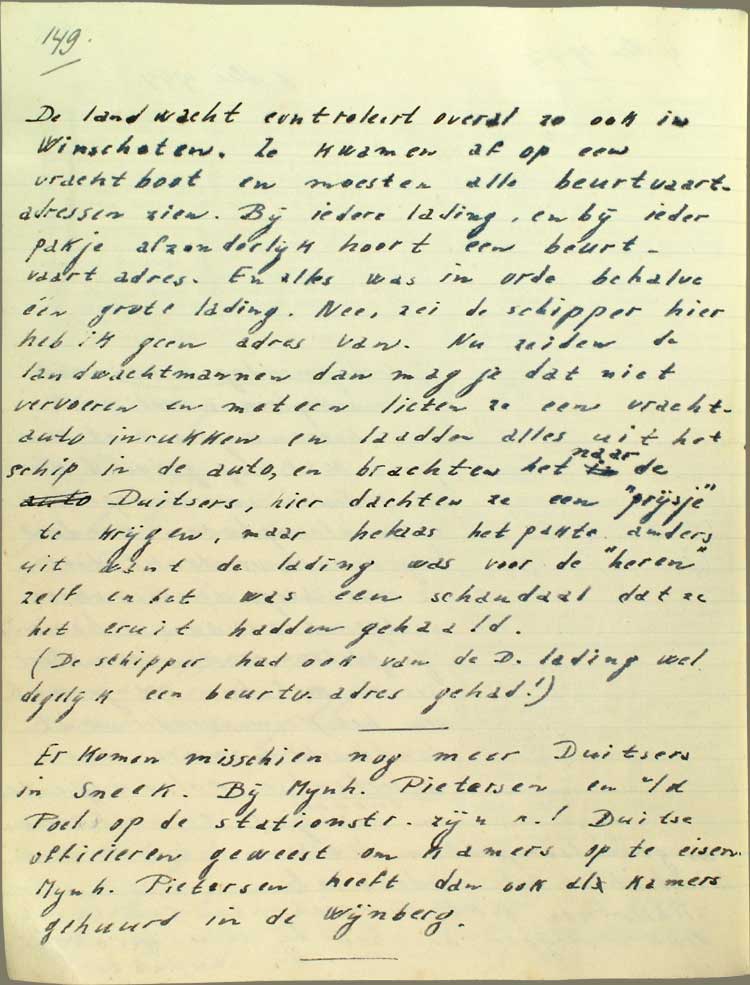 149.
De landwacht controleert overal zo ook in
Winschoten. Ze kwamen af op een
vrachtboot en moesten alle beurtvaart-
adressen zien. Bij iedere lading, en bij ieder
pakje afzonderlijk hoort een beurt-
vaart adres. En alles was in orde behalve
één grote lading. Nee, zei de schipper hier
heb ik geen adres van. Nu zeiden de
landwachtmannen dan mag je dat niet
vervoeren en meteen lieten ze een vracht-
auto inrukken en laadden alles uit het
schip in de auto, en brachten het naar de
auto Duitsers, hier dachten ze een "prijsje"
te krijgen, maar helaas het pakte anders
uit want de lading was voor de "heren"
zelf en het was een schandaal dat ze
het eruit hadden gehaald.
(De schipper had ook van de D. lading wel
degelijk een beurtv. adres gehad!)
Er komen misschien nog meer Duitsers
in Sneek. Bij Mijnh. Pietersen en v/d
Poel op de stationstr. zijn n.l Duitse
officieren geweest om kamers op te eisen.
Mijnh. Pietersen heeft dan ook als kamers
gehuurd in de Wijnberg.